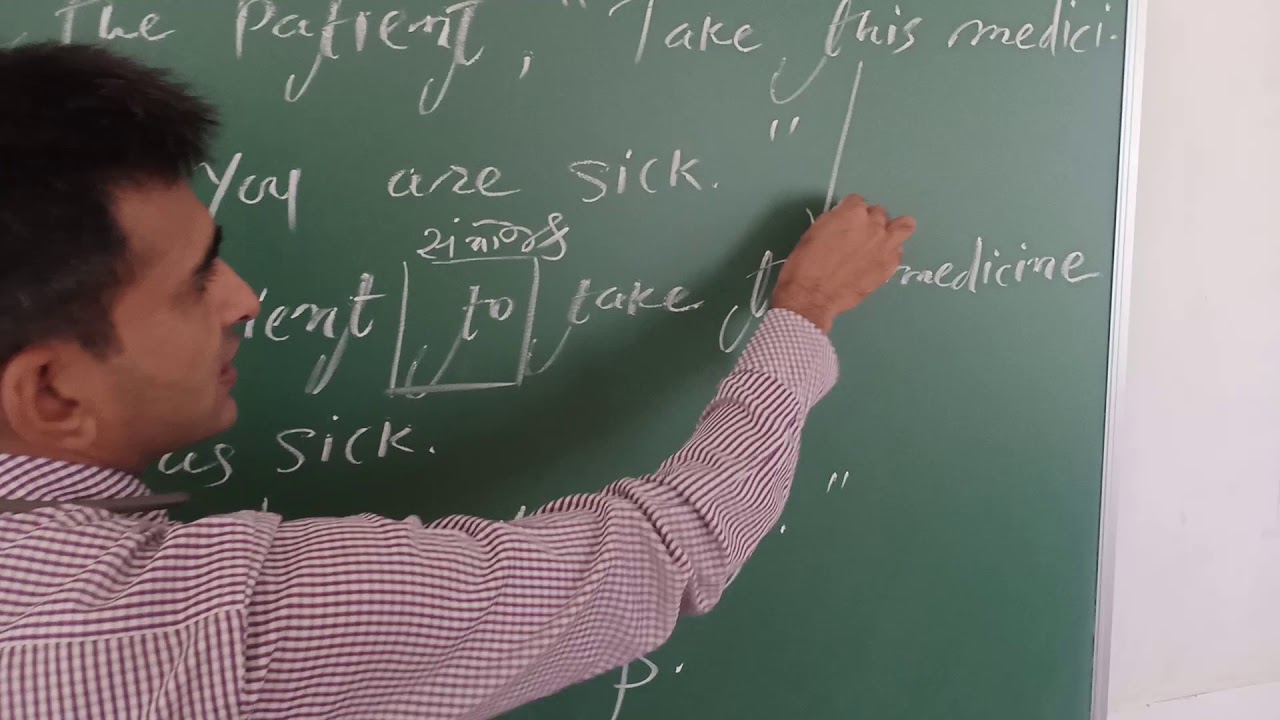 the Patient, "Take this medici.
You are sick. "
સંયોજક
ient to take t medicine
as sick.
. "
p.